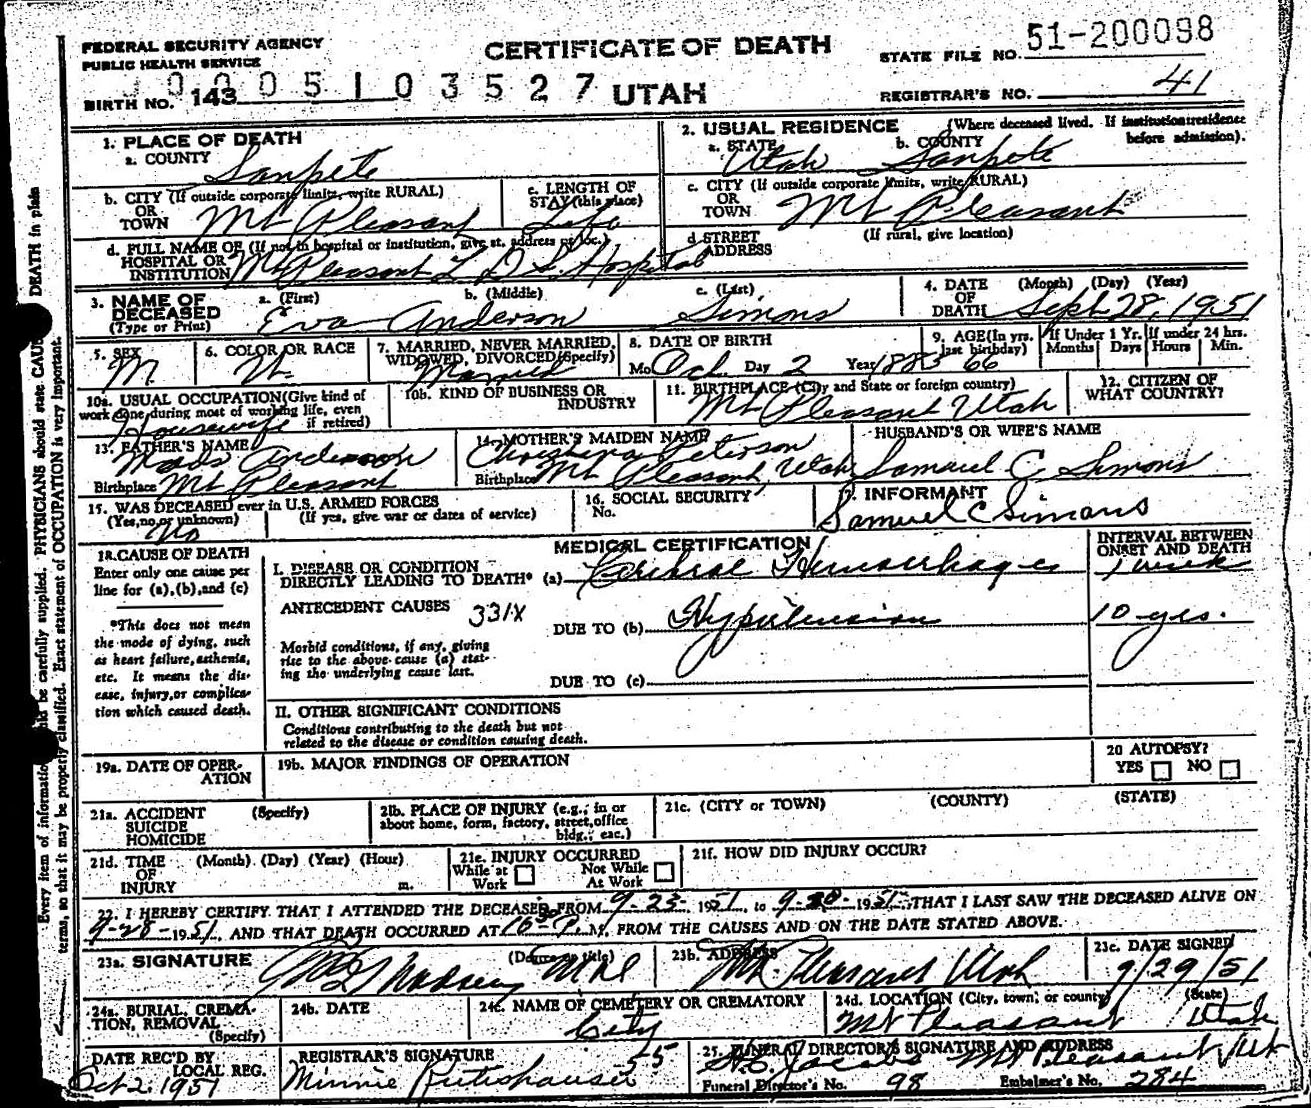 FEDERAL SECURITY AGENCY
PUBLIC HEALTH SERVICE
CERTIFICATE OF DEATH
STATE FILE NO. 51-200098
0005103527
BIRTH NO. 143
UTAH
REGISTRAR'S NO. 41
1. PLACE OF DEATH
a. COUNTY Sanpete
2. USUAL RESIDENCE (Where deceased lived. If institution:residence before admission).
a. STATE Utah b. COUNTY Sanpete
b. CITY (If outside corporate limits, write RURAL) OR TOWN Mt Pleasant
c. LENGTH OF STAY (this place) Life
c. CITY (If outside corporate limits, write RURAL) OR TOWN Mt Pleasant
d. FULL NAME OF (If not in hospital or institution, give st. address or loc.) HOSPITAL OR INSTITUTION Mt Pleasant L D S Hospital
d STREET ADDRESS (If rural, give location)
3. NAME OF DECEASED (Type or Print)
a. (First) Eva b. (Middle) Anderson c. (Last) Simons
4. DATE OF DEATH (Month) (Day) (Year) Sept 28, 1951
5. SEX M.
6. COLOR OR RACE W.
7. MARRIED, NEVER MARRIED, WIDOWED, DIVORCED(Specify) Married
8. DATE OF BIRTH Mo Oct Day 2 Year 1885
9. AGE(In yrs. last birthday) 66
If Under 1 Yr. Months Days
If under 24 hrs. Hours Min.
10a. USUAL OCCUPATION(Give kind of work done during most of working life, even if retired) Housewife
10b. KIND OF BUSINESS OR INDUSTRY
11. BIRTHPLACE (City and State or foreign country) Mt Pleasant Utah
12. CITIZEN OF WHAT COUNTRY?
13. FATHER'S NAME Mads Anderson
Birthplace Mt Pleasant
14. MOTHER'S MAIDEN NAME Christena Peterson
Birthplace Mt Pleasant, Utah
HUSBAND'S OR WIFE'S NAME
Samuel C Simons
15. WAS DECEASED ever in U.S. ARMED FORCES
(Yes, no, or unknown) (If yes, give war or dates of service)
No
16. SOCIAL SECURITY No.
17. INFORMANT
Samuel C Simons
18. CAUSE OF DEATH
Enter only one cause per line for (a),(b),and (c)
*This does not mean the mode of dying, such as heart failure, asthenia, etc. It means the disease, injury, or complication which caused death.
MEDICAL CERTIFICATION
INTERVAL BETWEEN ONSET AND DEATH
I. DISEASE OR CONDITION DIRECTLY LEADING TO DEATH* (a) Cerebral Hemorrhages 1 week
ANTECEDENT CAUSES 331X
DUE TO (b) Hypertension 10 yrs.
Morbid conditions, if any, giving rise to the above cause (a) stating the underlying cause last.
DUE TO (c)
II. OTHER SIGNIFICANT CONDITIONS
Conditions contributing to the death but not related to the disease or condition causing death.
19a. DATE OF OPERATION
19b. MAJOR FINDINGS OF OPERATION
20 AUTOPSY?
YES NO
21a. ACCIDENT SUICIDE HOMICIDE (Specify)
21b. PLACE OF INJURY (e.g., in or about home, form, factory, street, office bldg., eac.)
21c. (CITY or TOWN) (COUNTY) (STATE)
21d. TIME OF INJURY (Month) (Day) (Year) (Hour) m.
21e. INJURY OCCURRED
While at Work Not While At Work
21f. HOW DID INJURY OCCUR?
22. I HEREBY CERTIFY THAT I ATTENDED THE DECEASED FROM 9-23- 1951, to 9-28- 1951, THAT I LAST SAW THE DECEASED ALIVE ON
9-28- 1951, AND THAT DEATH OCCURRED AT 10 30 P. M, FROM THE CAUSES AND ON THE DATE STATED ABOVE.
23a. SIGNATURE (Degree or title) Madsen M.D.
23b. ADDRESS Mt. Pleasant Utah
23c. DATE SIGNED 9/29/51
24a. BURIAL, CREMATION, REMOVAL (Specify)
24b. DATE
24c. NAME OF CEMETERY OR CREMATORY City
24d. LOCATION (City, town, or county) (State)
Mt Pleasant Utah
DATE REC'D BY LOCAL REG.
Oct 2 1951
REGISTRAR'S SIGNATURE
Minnie Rutishauser 55
25. FUNERAL DIRECTOR'S SIGNATURE AND ADDRESS
Jacobs Mt Pleasant Ut
Funeral Director's No. 98 Embalmer's No. 284
Every item of information should be carefully supplied. PHYSICIANS should state CAUSE DEATH in plain
terms, so that it may be properly classified. Exact statement of OCCUPATION is very important.